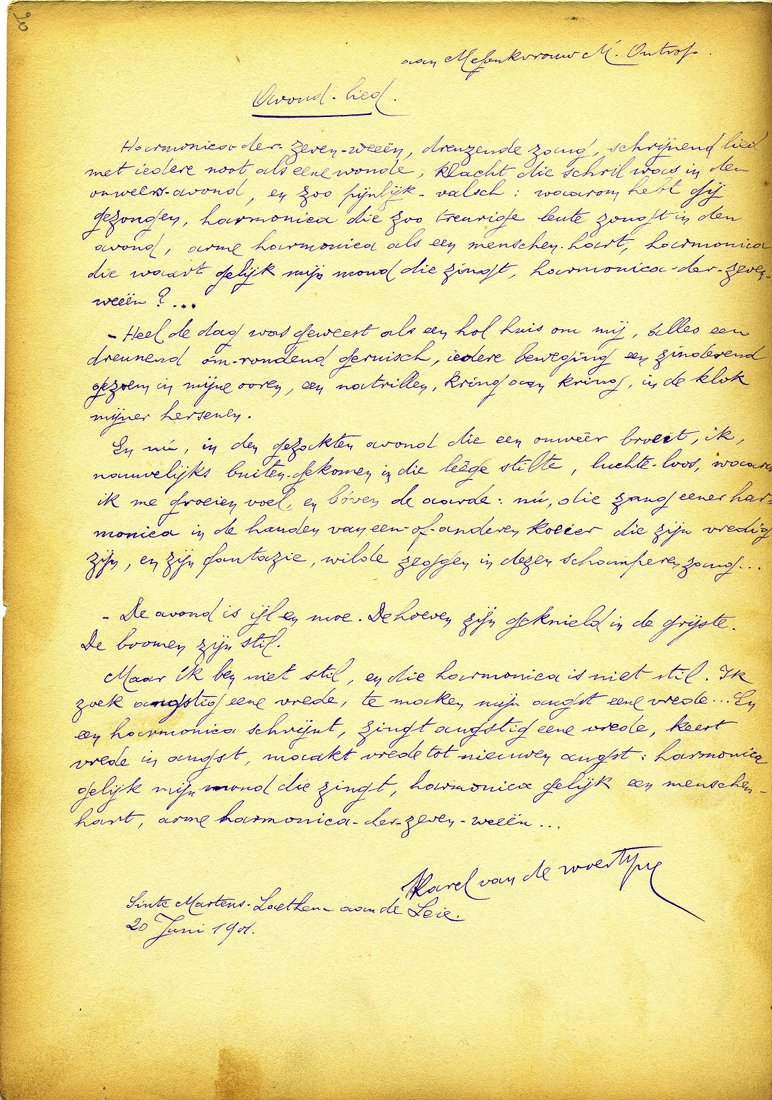 aan Mejonkvrouw M. Ontrop.
Avond-lied.
Harmonica-der-zeven-weeën, dreuzende zang, schrijnend lied
met iedere noot als eene wonde, klacht die schril was in den
onweers-avond, en zoo pijnlijk-valsch: waarom hebt gij
gezongen, harmonica die zoo treurige leute zongt in den
avond, arme harmonica als een menschen-hart, harmonica
die waart gelijk mijn mond die zingt, harmonica-der-zeven-
weeën?...
- Heel de dag was geweest als een hol huis om mij, alles een
dreunend om-rondend geruisch, iedere beweging een zinderend
gezoem in mijne ooren, een natrillen, kring aan kring, in de klok
mijner hersenen.
En nú, in den gezakten avond die een onweêr broeit, ik,
nauwelijks buiten-gekomen in die leêge stilte, luchte-loos, waar
ik me groeien voel, en bóven de aarde: nú, die zang eener har-
monica in de handen van een-of-anderen koeier die zijn vredig
zijn, en zijn fantazie, wilde zeggen in dezen schamperen zang...
- De avond is ijl en moe. De hoeven zijn geknield in de grijste.
De boomen zijn stil.
Maar ik ben niet stil, en die harmonica is niet stil. Ik
zoek angstig eene vrede, te maken mijn angst eene vrede... En
een harmonica schrijnt, zingt angstig eene vrede, keert
vrede in angst, maakt vrede tot nieuwen angst: harmonica
gelijk mijn mond die zingt, harmonica gelijk een menschen-
hart, arme harmonica-der-zeven-weeën...
Karel van de Woestijne
Sinte Martens-Laethem aan de Leie.
20 Juni 1901.